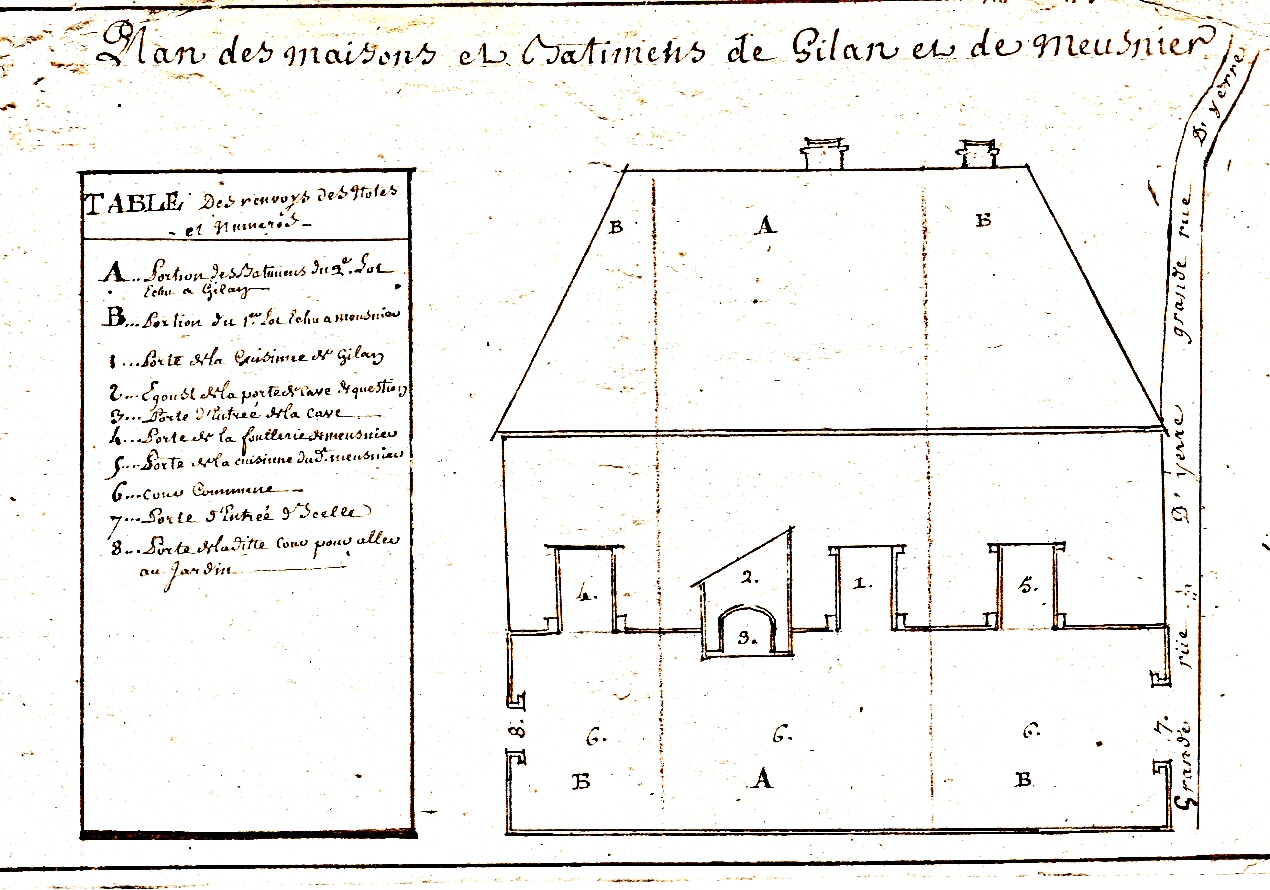 Plan des maisons et Batimens de Gilan et de Meusnier
TABLE Des renvoys des Notes
- et Numeros -
A .. Portion des Batimens du 2e. Lot
Echu a Gilan
B ... Portion du 1er Lot Echu a meusnier
1 ... Porte de la Cuisinne de Gilan
2 ... Egoust de la porte de Cave de question
3 ... Porte d'Entreé de la Cave
4 ... Porte de la de meusnier
5 ... Porte de la cuisinne du d. meusnier
6 ... cour Commune
7 ... Porte d'Entreé d'Icelle
8 .. Porte de laditte Cour pour aller
au Jardin
B
A
B
4.
2.
3.
1.
5.
8.
6.
6.
6.
7.
B
A
B
Grande rüe D'yerre grande rue D'yerre